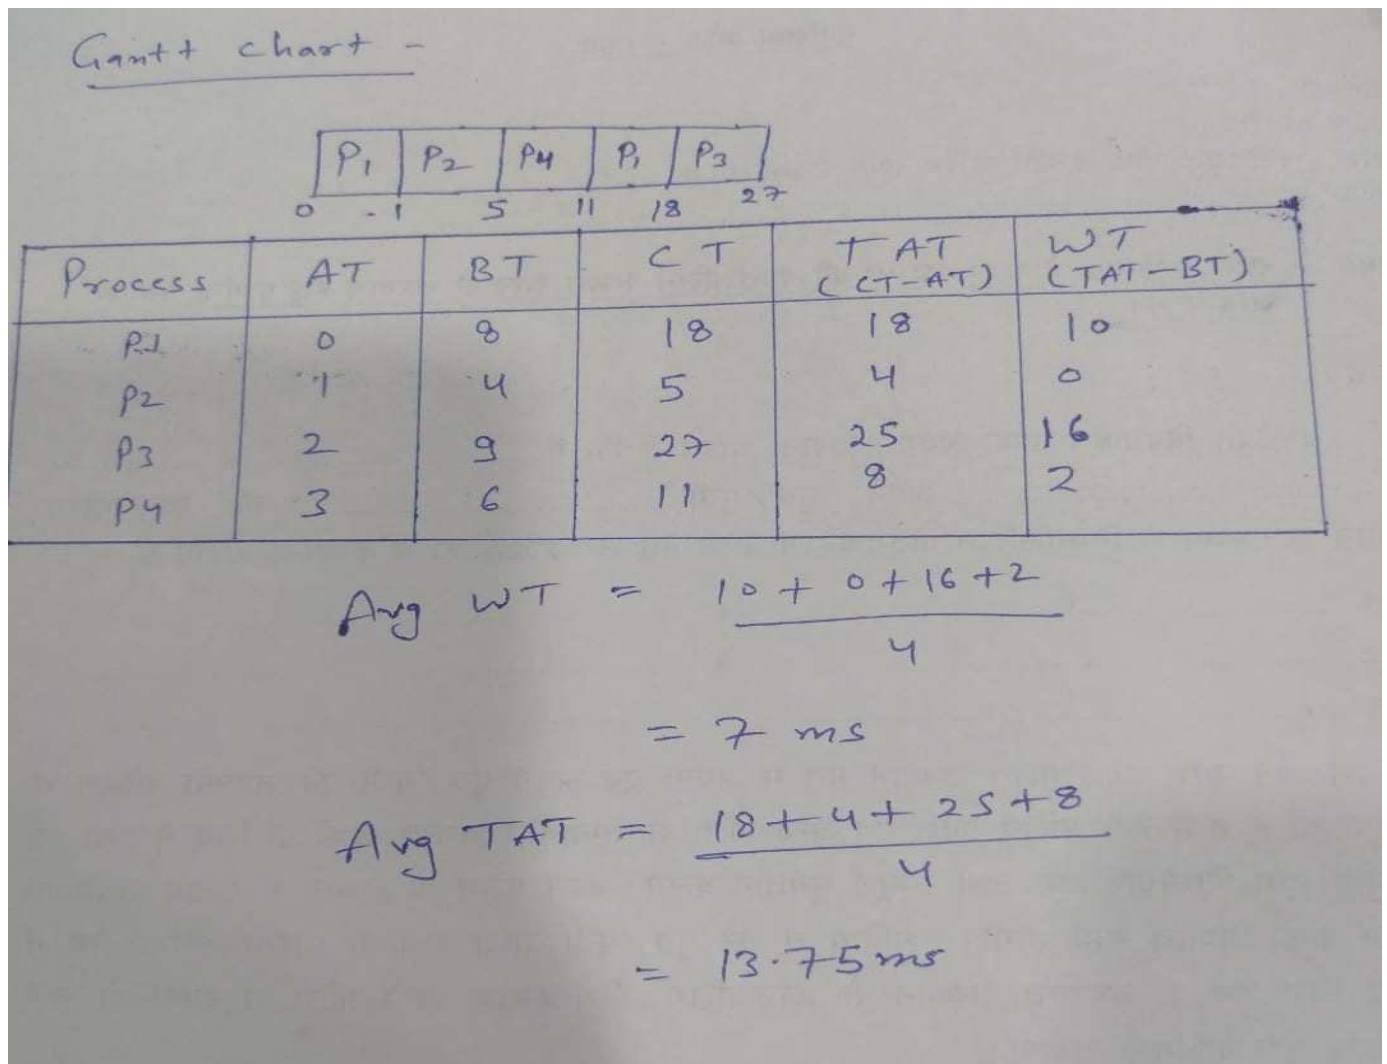 Gantt chart -
P1 P2 P4 P1 P3
0 1 5 11 18 27
Process AT BT CT TAT (CT-AT) WT (TAT-BT)
P1 0 8 18 18 10
P2 1 4 5 4 0
P3 2 9 27 25 16
P4 3 6 11 8 2
Avg WT = 10 + 0 + 16 + 2
4
= 7 ms
Avg TAT = 18 + 4 + 25 + 8
4
= 13.75 ms